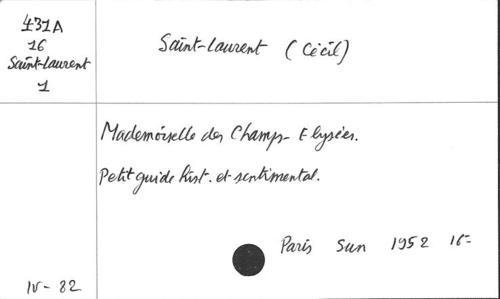 431A
16
Saint-Laurent
1
Saint-Laurent (Cécil)
Mademoiselle des Champs-Elysées.
Petit guide hist. et sentimental.
Paris Sun 1952 16-
IV-82